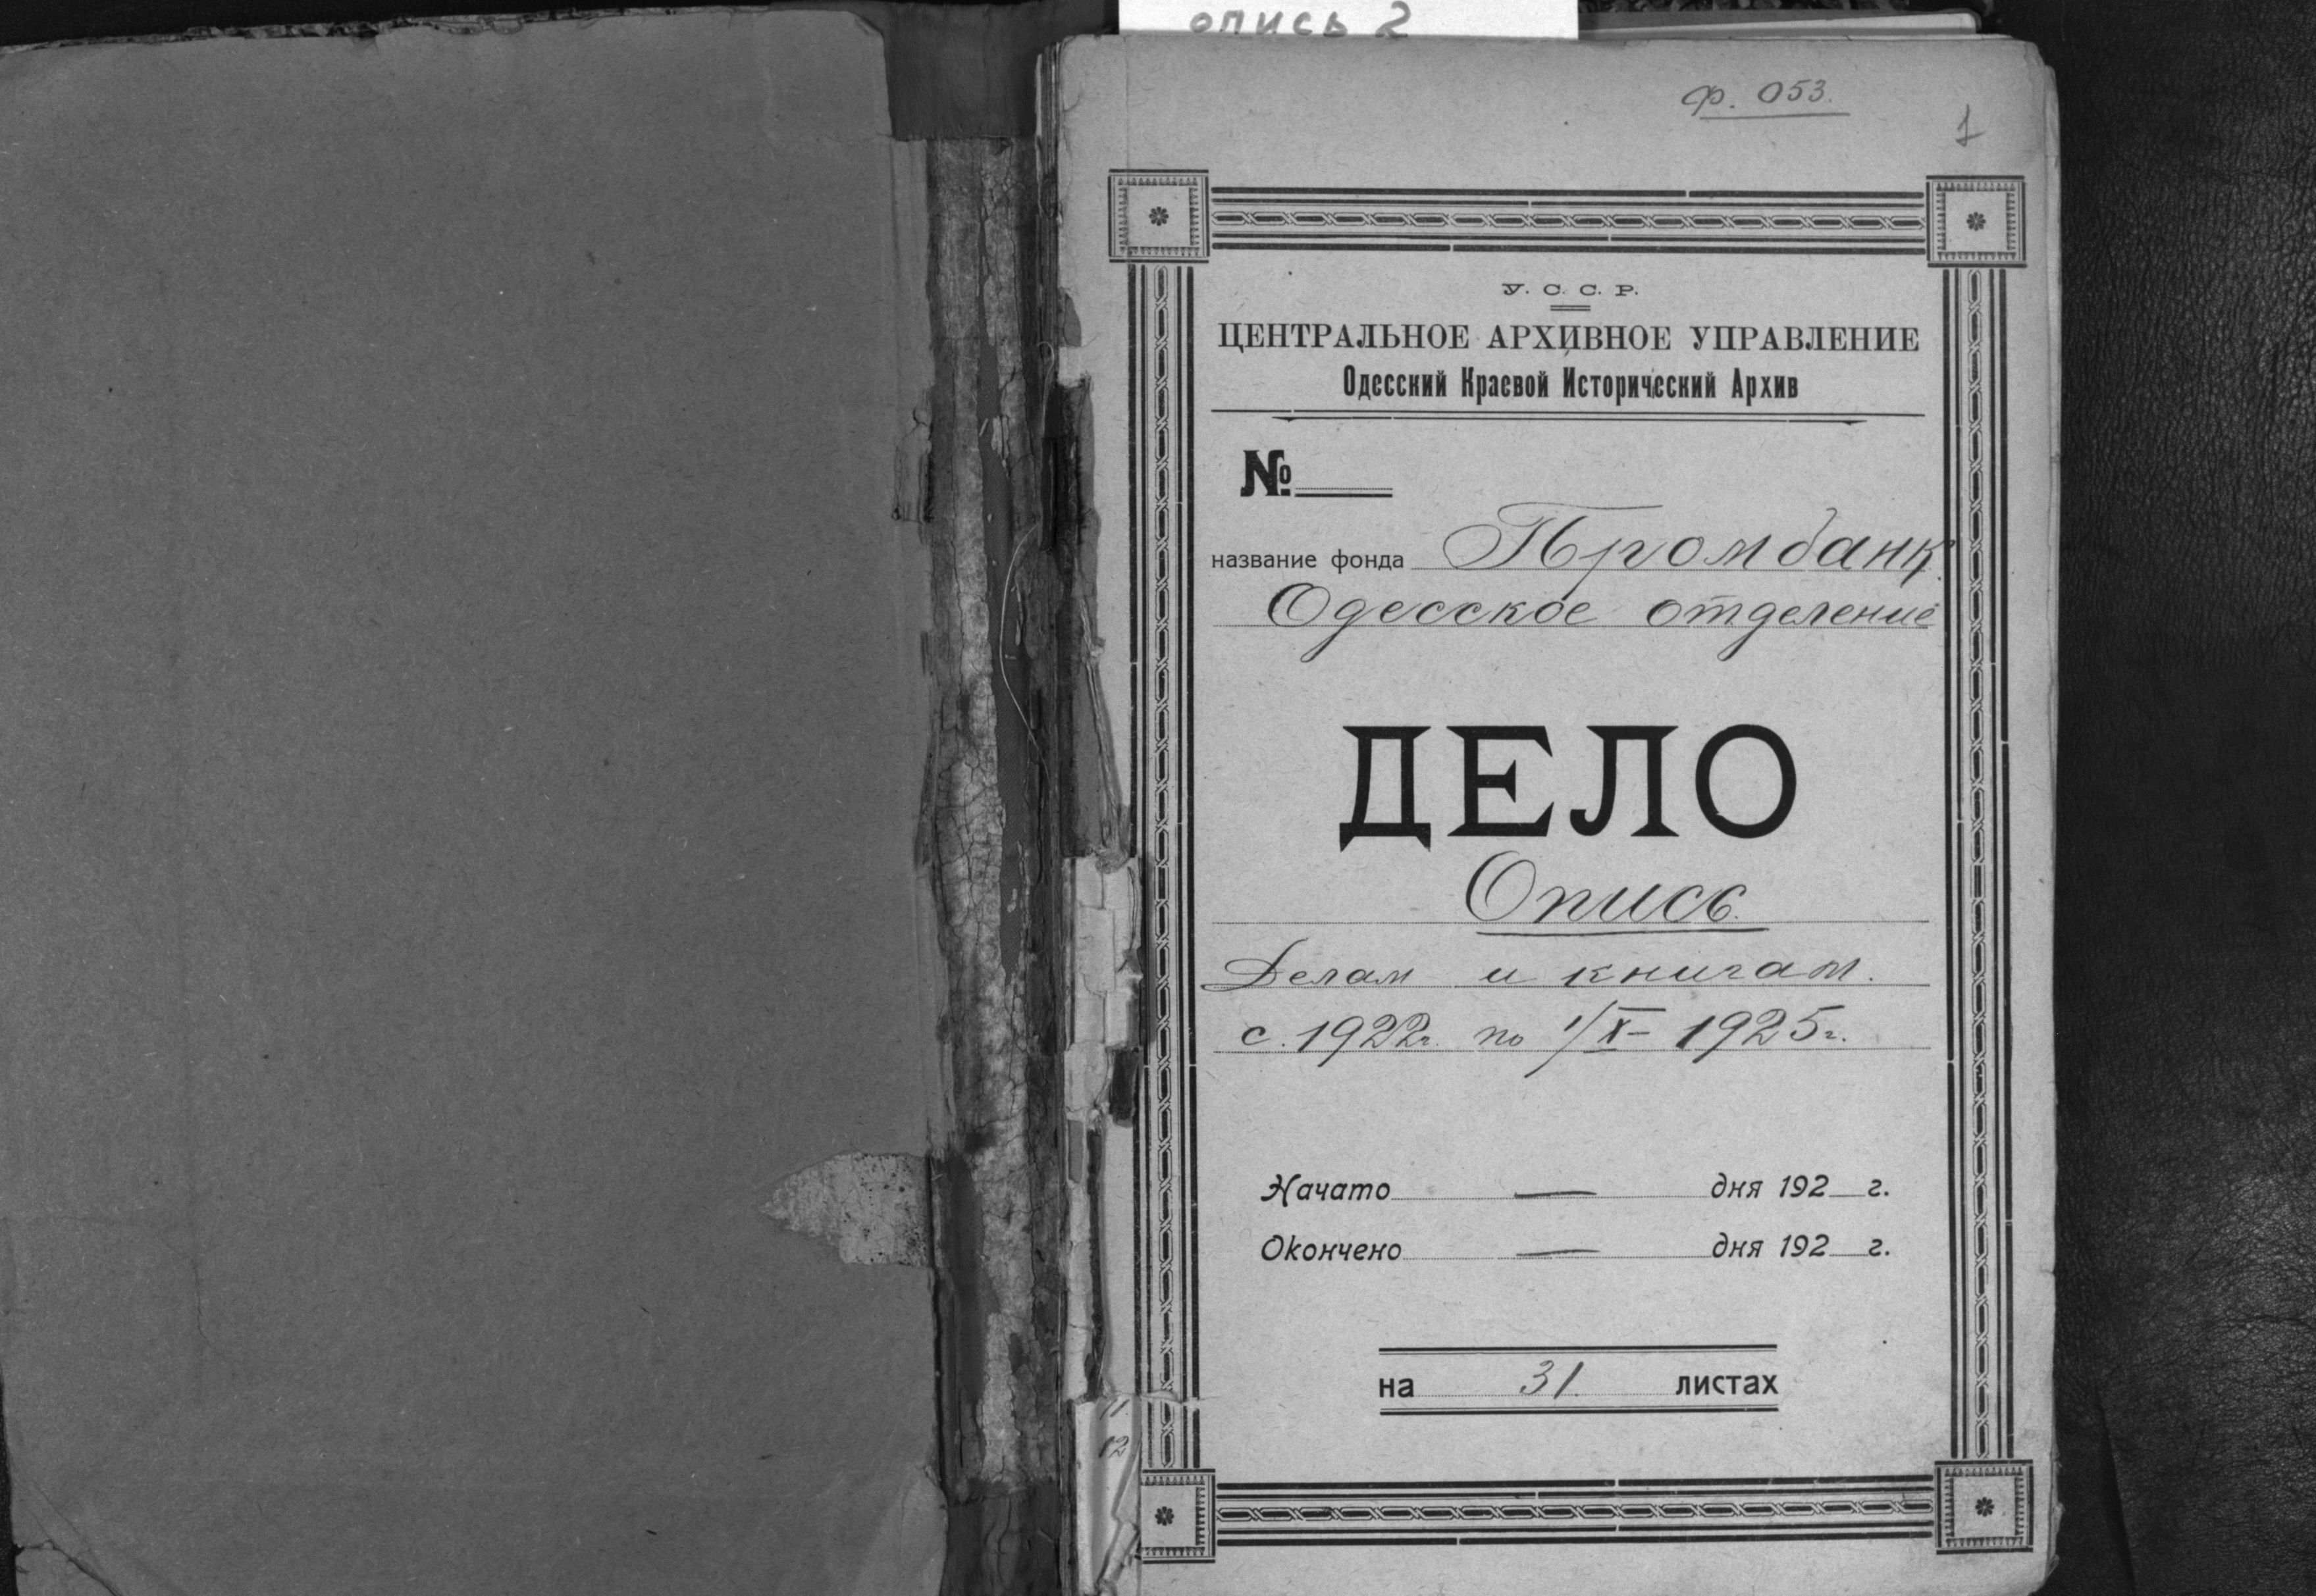 опись 2
ф. 053.
1
У. С. С. Р.
ЦЕНТРАЛЬНОЕ АРХИВНОЕ УПРАВЛЕНИЕ
Одесский Краевой Исторический Архив
№
название фонда Промбанк.
Одесское отделение
ДЕЛО
Опись.
Делам и книгам.
с. 1922г. по 1/X– 1925г.
Начато — дня 192 г.
Окончено — дня 192 г.
на 31. листах
11
12